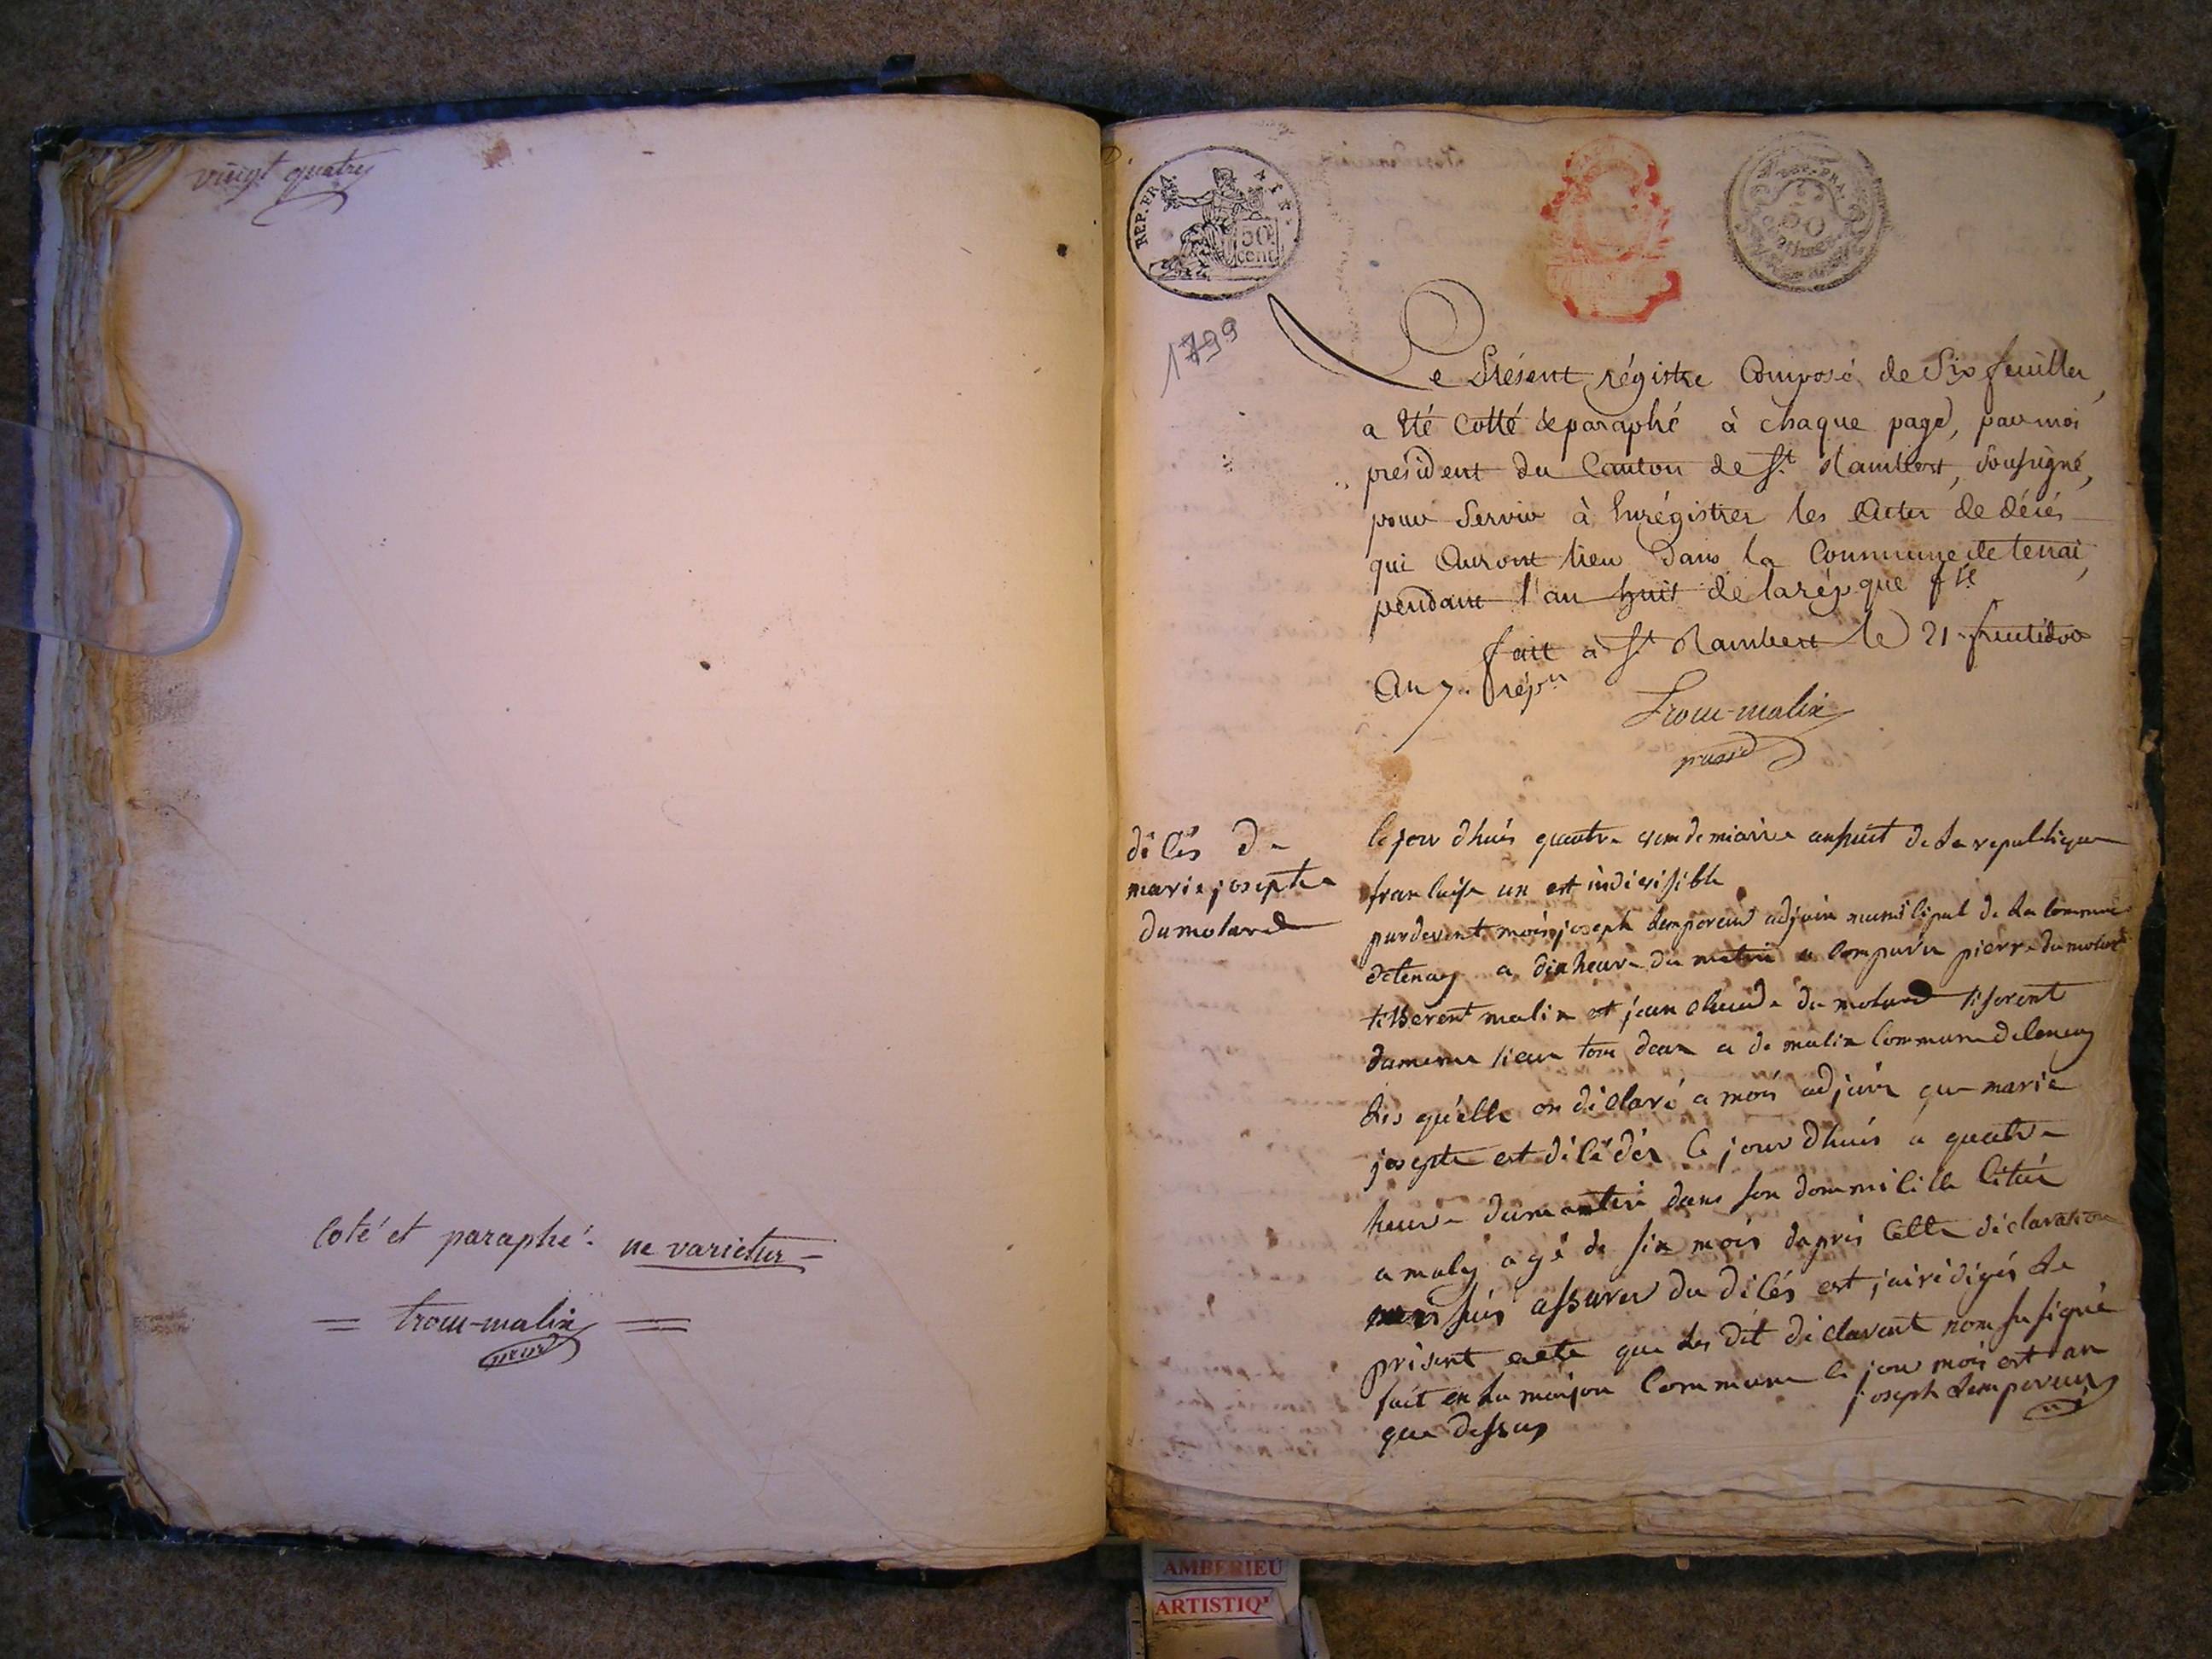 vingt quatre
Coté et paraphé. ne varietur
= trocu-malix =
REP. FRA.
50
cent
REP. FRA.
50
centimes
1799
Le Présent régistre Composé de Six feuilles,
a Eté Cotté & paraphé à chaque page, par moi
président du Canton de St. Rambert, soussigné,
pour Servir à Enrégistrer les Actes de décés
qui Auront lieu dans la Commune de tenai,
pendant l'an huit de la répque fse
fait à St. Rambert le 21 fructidor
An 7. répn
Trocu-malix
présid
décés de
marie josephte
dumolard
Ce jour dhuis quatre vendemiaire an huit de la republique
francaise un est indivisible
pardevent mois joseph temporeux adjoin municipal de la commune
de tenay a dix heure du matin a comparu pierre dumolard
tisserent malix est jean claude du molard tiserent
du meme lieux tou deux a de malix Commune de tenay
les quelle on déclaré a mois adjoin que marie
josephte est décédés ce jour dhuis a quatre
heure du matin dans son dommicille citué
a malix agé de six mois dapris cette déclaration
me suis assurer du décés est jai rédigés le
présent acte que les dit déclarent nom su signé
fait en la maison Commune le jour mois est an
que dessus
joseph temporeux
AMBERIEU
ARTISTIQ'